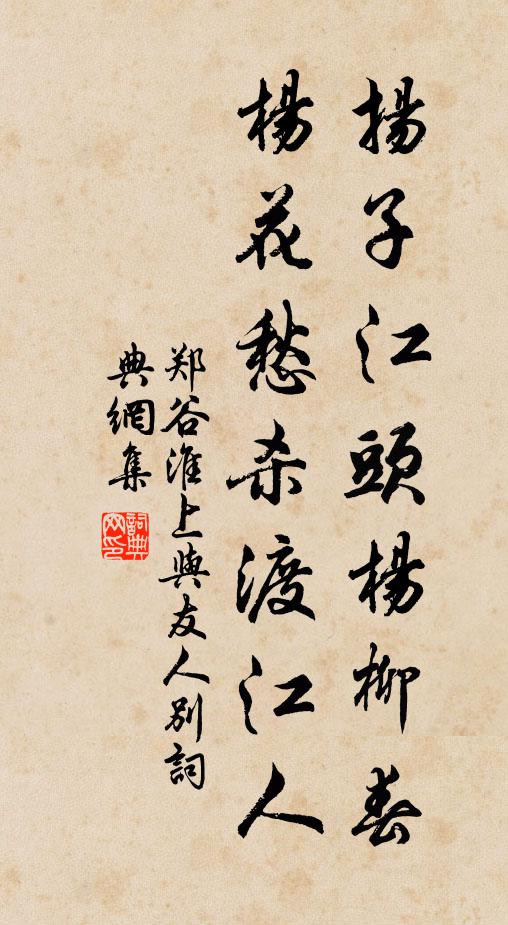 揚子江頭楊柳春
楊花愁杀渡江人
郑谷淮上與友人別詞
典網集
詞典網印